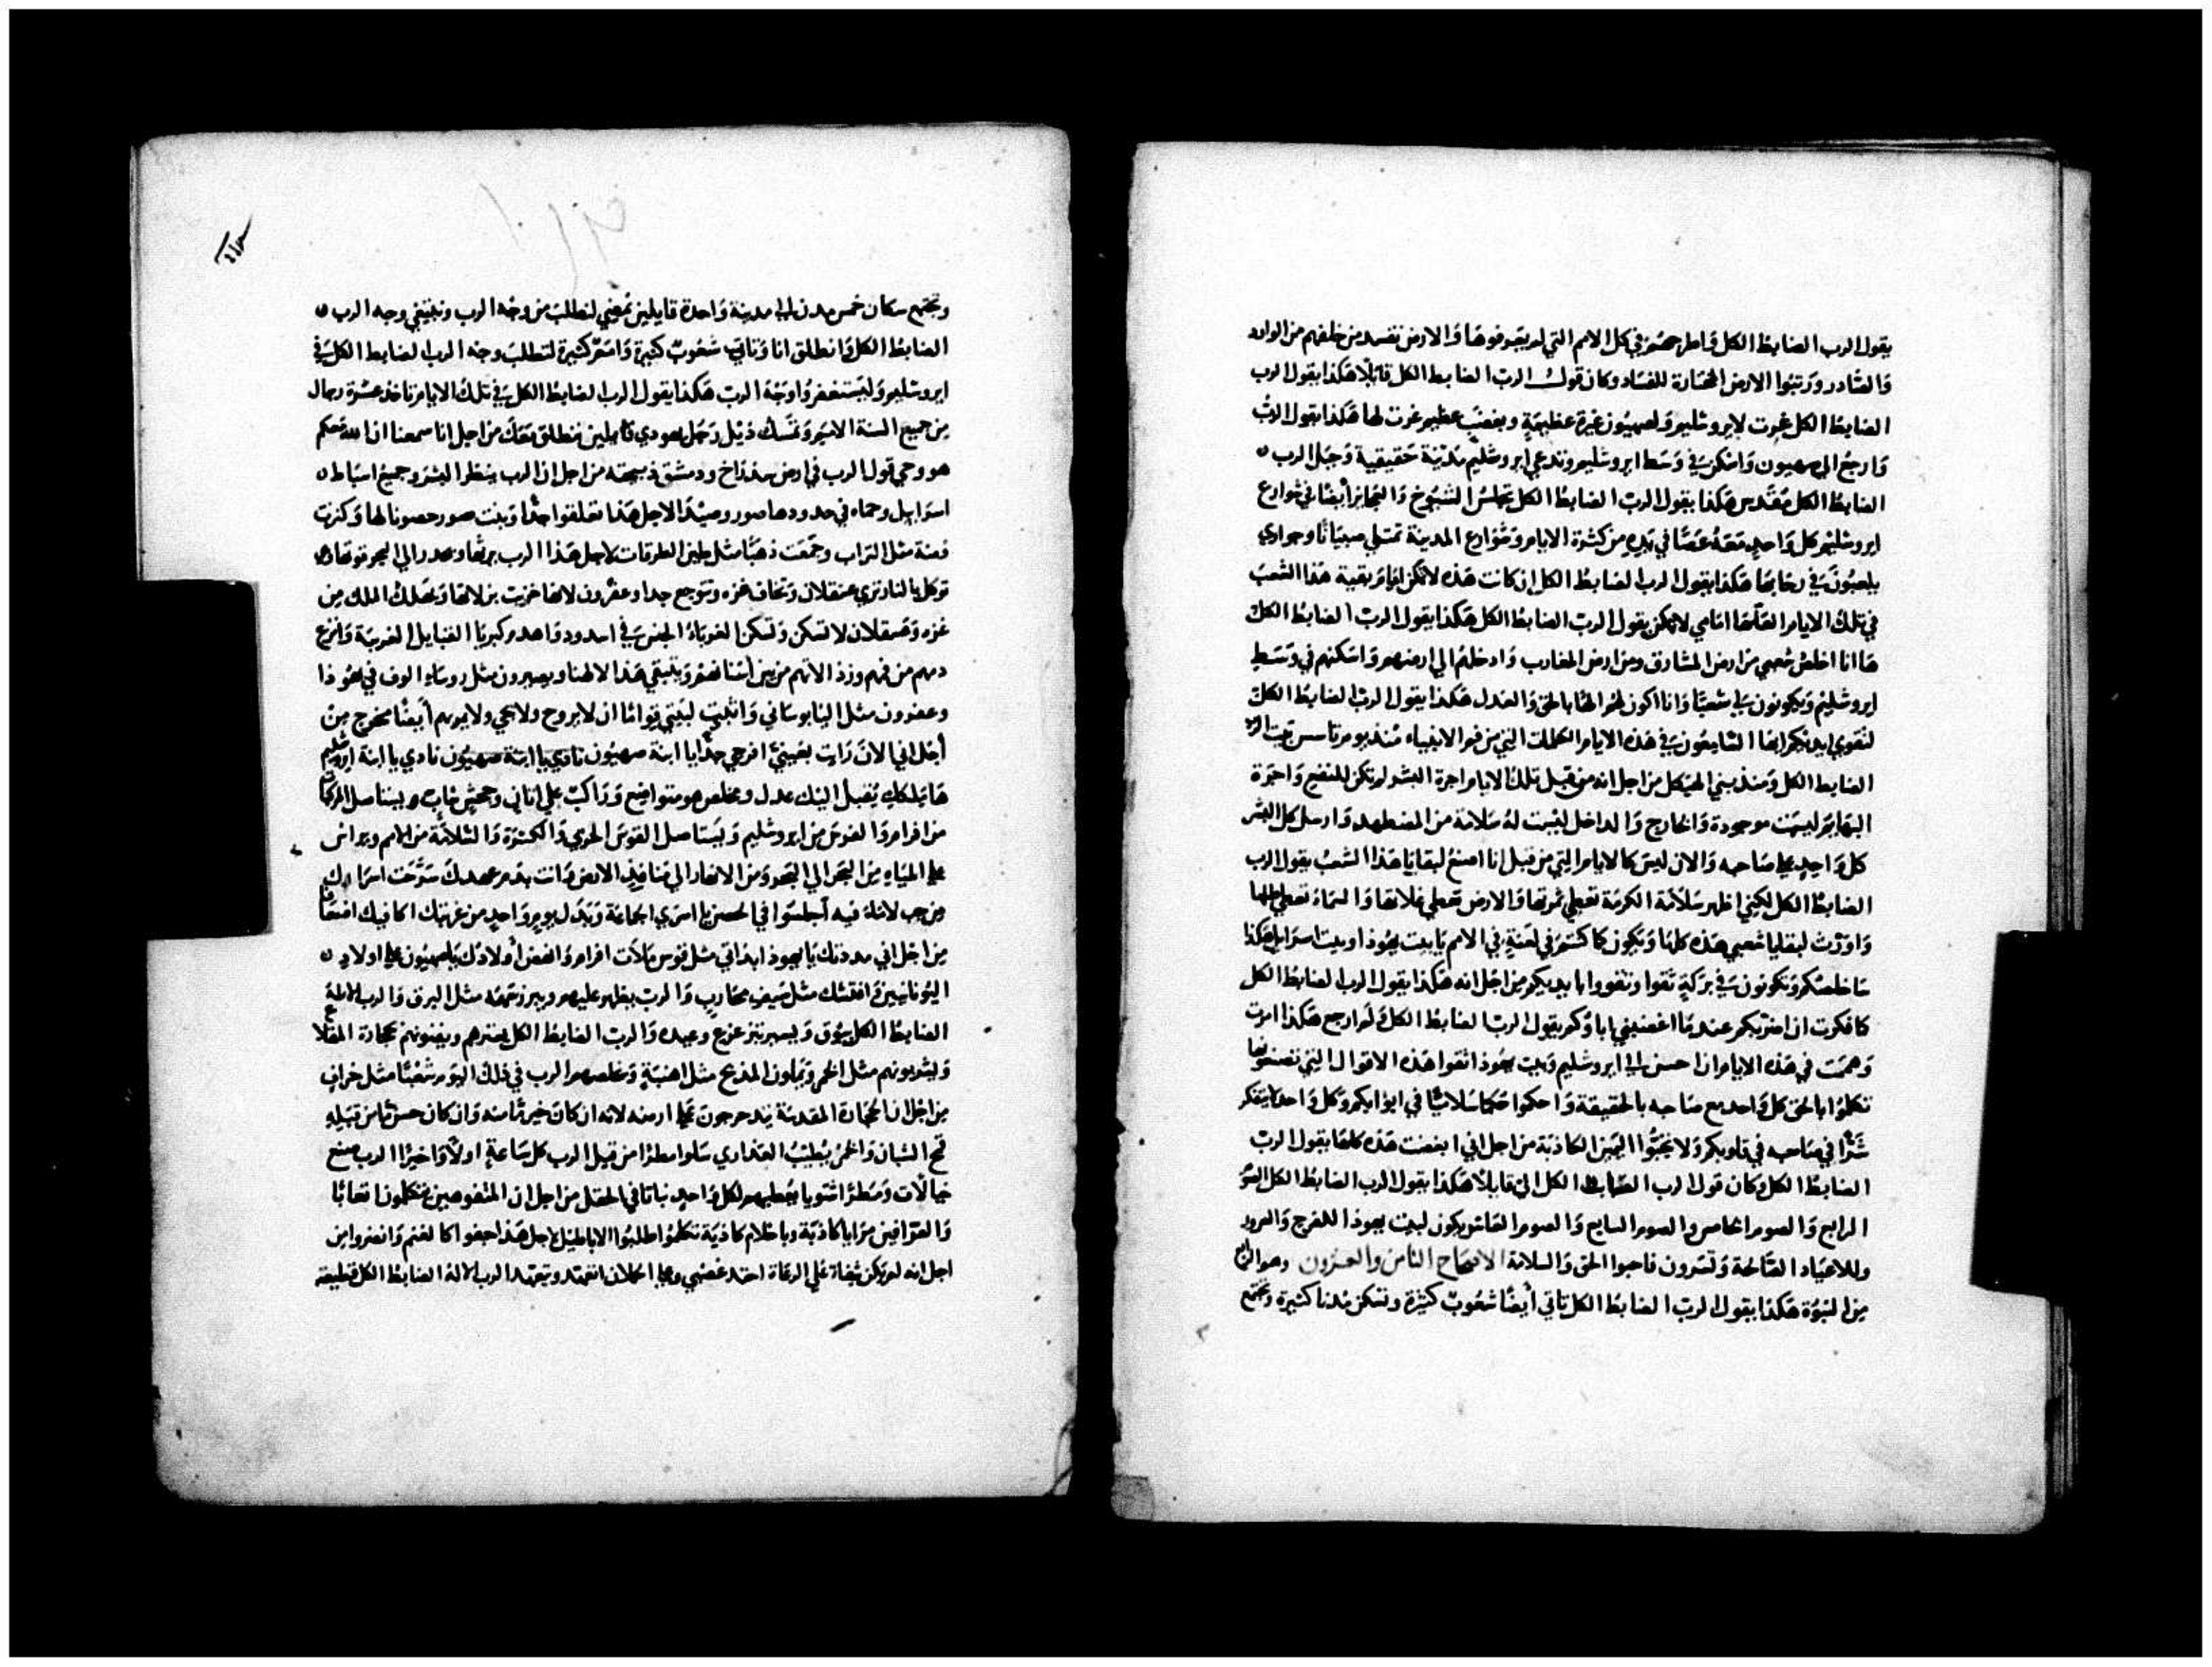 يقول الرب الضابط الكل واطرحهم في كل الامم التي لم يعرفوها والارض تفسد من خلفهم من الوارد
والصادر ورتبوا الارض المختارة للفساد وكان قول الرب الضابط الكل قايلا هكذا يقول الرب
الضابط الكل غرت لايروشليم ولصهيون غيرة عظيمة وبغضب عظيم غرت لها هكذا يقول الرب
وارجع الي صهيون واسكن في وسط ايروشليم وتدعي ايروشليم مدينة حقيقية وجبل الرب
الضابط الكل مقدس هكذا يقول الرب الضابط الكل تجلس الشيوخ والعجايز أيضًا في شوارع
ايروشليم كل واحد معه عصا في يده من كثرة الايام وشوارع المدينة تمتلي صبيانًا وجواري
يلعبون في رحابها هكذا يقول الرب الضابط الكل ان كانت هذه لا تمكن امام بقية هذا الشعب
في تلك الايام امامي لا يمكن يقول الرب الضابط الكل هكذا يقول الرب الضابط الكل
ها انا اخلص شعبي من ارض المشارق ومن ارض المغارب وادخلهم الي ارضهم واسكنهم في وسط
ايروشليم ويكونون لي شعبًا وانا اكون لهم الهًا بالحق والعدل هكذا يقول الرب الضابط الكل
لتقوي ايديكم ايها السامعون في هذه الايام الكلمات التي من فم الانبياء منذ يوم تأسس بيت الرب
الضابط الكل ومنذ بني الهيكل من اجل انه من قبل تلك الايام اجرة البشر لم تكن للمنفع واجرة
البهايم ليست موجودة والخارج والداخل ليست له سلامة من المضطهد وارسل كل البشر
كل واحد علي صاحبه والان ليس كالايام التي من قبل انا اصنع لبقايا هذا الشعب يقول الرب
الضابط الكل لكني اظهر سلامة الكرمة تعطي ثمرتها والارض تعطي غلاتها والسماء تعطي طلها
واورث لبقايا شعبي هذه كلها ويكون كما كنتم في لعنة في الامم يا بيت يهوذا وبيت اسراييل هكذا
ساخلصكم وتكونون في بركة ثقوا وتقووا بايديكم من اجل انه هكذا يقول الرب الضابط الكل
كما فكرت ان اضربكم عندما اغضبني اباوكم يقول الرب الضابط الكل ولم ارجع هكذا امرت
وهممت في هذه الايام ان احسن الي ايروشليم وبيت يهوذا اتقوا هذه الاقوال التي تصنعونها
تكلموا بالحق كل واحد مع صاحبه بالحقيقة واحكموا حكما سلاميًا في ابوابكم وكل واحد لا يتفكر
شرًا في صاحبه في قلوبكم ولا تحبوا اليمين الكاذبة من اجل اني ابغضت هذه كلها يقول الرب
الضابط الكل وكان قول الرب الضابط الكل الي قايلا هكذا يقول الرب الضابط الكل الصوم
الرابع والصوم الخامس والصوم السابع والصوم العاشر يكون لبيت يهوذا للفرح والسرور
وللاعياد الصالحة وتسرون فاحبوا الحق والسلامة الاصحاح الثامن والعشرون وهو الرابع
من النبوة هكذا يقول الرب الضابط الكل تاتي أيضًا شعوب كثيرة وتسكن مدنا كثيرة وتجتمع
وتجتمع سكان خمس مدن الي مدينة واحدة قايلين نمضي لنطلب من وجه الرب ونبتغي وجه الرب
الضابط الكل وانطلق انا وتاتي شعوب كثيرة وامم كثيرة لتطلب وجه الرب الضابط الكل في
ايروشليم وليستغفروا وجه الرب هكذا يقول الرب الضابط الكل في تلك الايام تاخذ عشرة رجال
من جميع السنة الامم وتمسك ذيل رجل يهودي قايلين ننطلق معك من اجل انا سمعنا ان الله معكم
هو وحي قول الرب في ارض سدراخ ودمشق ذبيحته من اجل ان الرب ينظر البشر وجميع اسباط
اسراييل وحماه في حدودها صور وصيدا لاجل هذا تعلقوا جدًا وبنت صور حصونا لها وكنزت
فضة مثل التراب وجمعت ذهبًا مثل طين الطرقات لاجل هذا الرب يرثها ويحدر الي البحر قوتها
توكل بالنار تري عسقلان وتخاف غزه وتتوجع جدا وعقرون لانها خزيت من لاتها ويهلك الملك من
غزه وعسقلان لا تسكن وتسكن الغرباء الجنس في اسدود واهدم كبريا القبايل الغريبة وانزع
دمهم من فمهم ورذالاتهم من بين أسنانهم ويبقي هذا لالهنا ويصيرون مثل روساء الوف في يهوذا
وعقرون مثل اليابوساني واثبت لبيتي قوامًا ان لا يروح ولا يجي ولا يمر بهم أيضًا مخرج من
أجل اني الان رايت بعيني افرحي جدًا يا ابنة صهيون نادي يا ابنة ايروشليم
ها ملكك يقبل اليك عدل ومخلص هو متواضع وراكب علي اتان وجحش شاب ويستاصل المركبات
من افرام والفرس من ايروشليم ويستاصل القوس الحربي والكثرة والسلامة من الامم ويراس
علي المياه من البحر الي البحر ومن الانهار الي منافذ الارض وانت بدم عهدك سرحت اسراك
من جب لا ماء فيه اجلسوا في الحصن يا اسري الجماعة وبدل يوم واحد من غربتك اكافيك اضعافا
من اجل اني مددتك يا يهوذا ابدا لي مثل قوس ملات افرام وانهض أولادك يا صهيون علي اولاد
اليونانيين وافتشك مثل سيف محارب والرب يظهر عليهم ويبرز سهمه مثل البرق والرب الاله
الضابط الكل يبوق ويسير بتزعزع وعيده والرب الضابط الكل يسترهم ويفنونهم بحجارة المقلاع
ويشربونهم مثل الخمر ويملون المذبح مثل اهنية ويخلصهم الرب في ذلك اليوم شعبًا مثل خراف
من اجل ان الحجارة المقدسة يتدحرجون علي ارضه لانه ان كان خير ما منه وان كان حسن ما من قبله
قمح الشبان والخمر يطيب العذاري سلوا مطرًا من قبل الرب كل ساعة اولًا واخيرًا الرب صنع
خيالات ومطرًا شتويا يعطيهم لكل واحد نباتا في الحقل من اجل ان المتفوهين يتكلمون اتعابًا
والعرافين مرايا كاذبة وباحلام كاذبة تكلموا اطلبوا الاباطيل لاجل هذا جفوا كالغنم وانضروا من
اجل انه لم يكن شفاة علي الرعاة احتد غضبي وعلي الحملان اتعهد ويتعهد الرب الاله الضابط الكل قطيعه